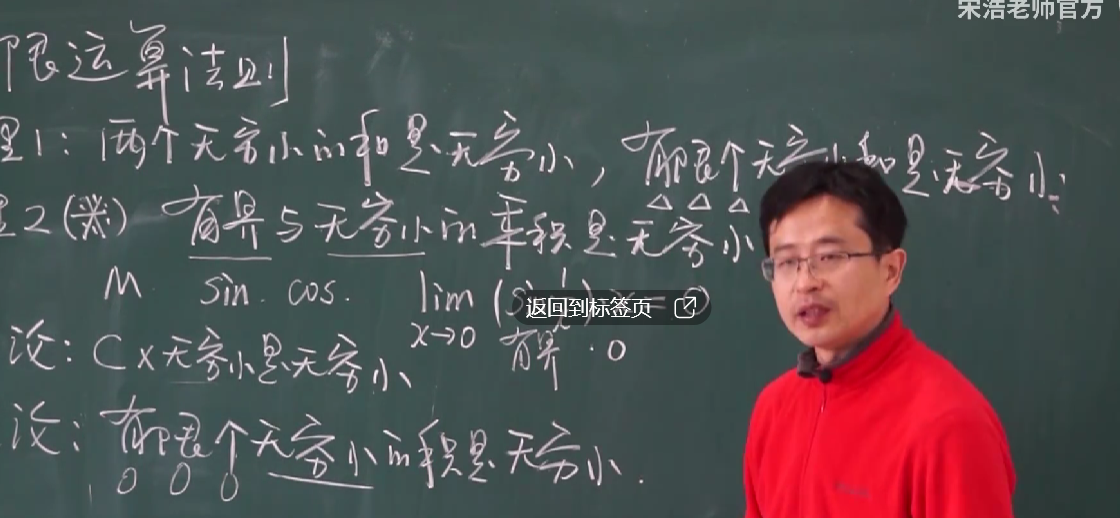 宋浩老师官方
限运算法则
理1：两个无穷小的和是无穷小，有限个无穷小和是无穷小
理2（※） 有界与无穷小的乘积是无穷小
M sin. cos. lim (sin 1/x) x = 0
x→0 有界 · 0
返回到标签页
论：C×无穷小是无穷小
论：有限个无穷小的积是无穷小.
0 0 0